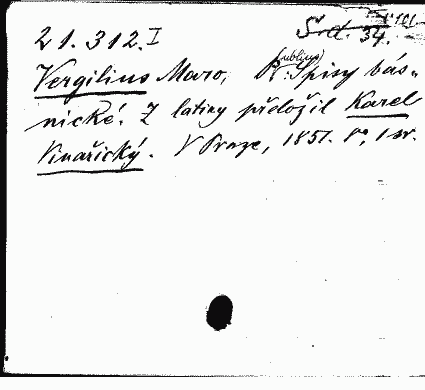 21.312.I
Š. d. 34.
Vergilius Maro, P(ublius): Spisy bás-
nické. Z latiny přeložil Karel
Vinařický. V Praze, 1851. 8°, 1 sv.